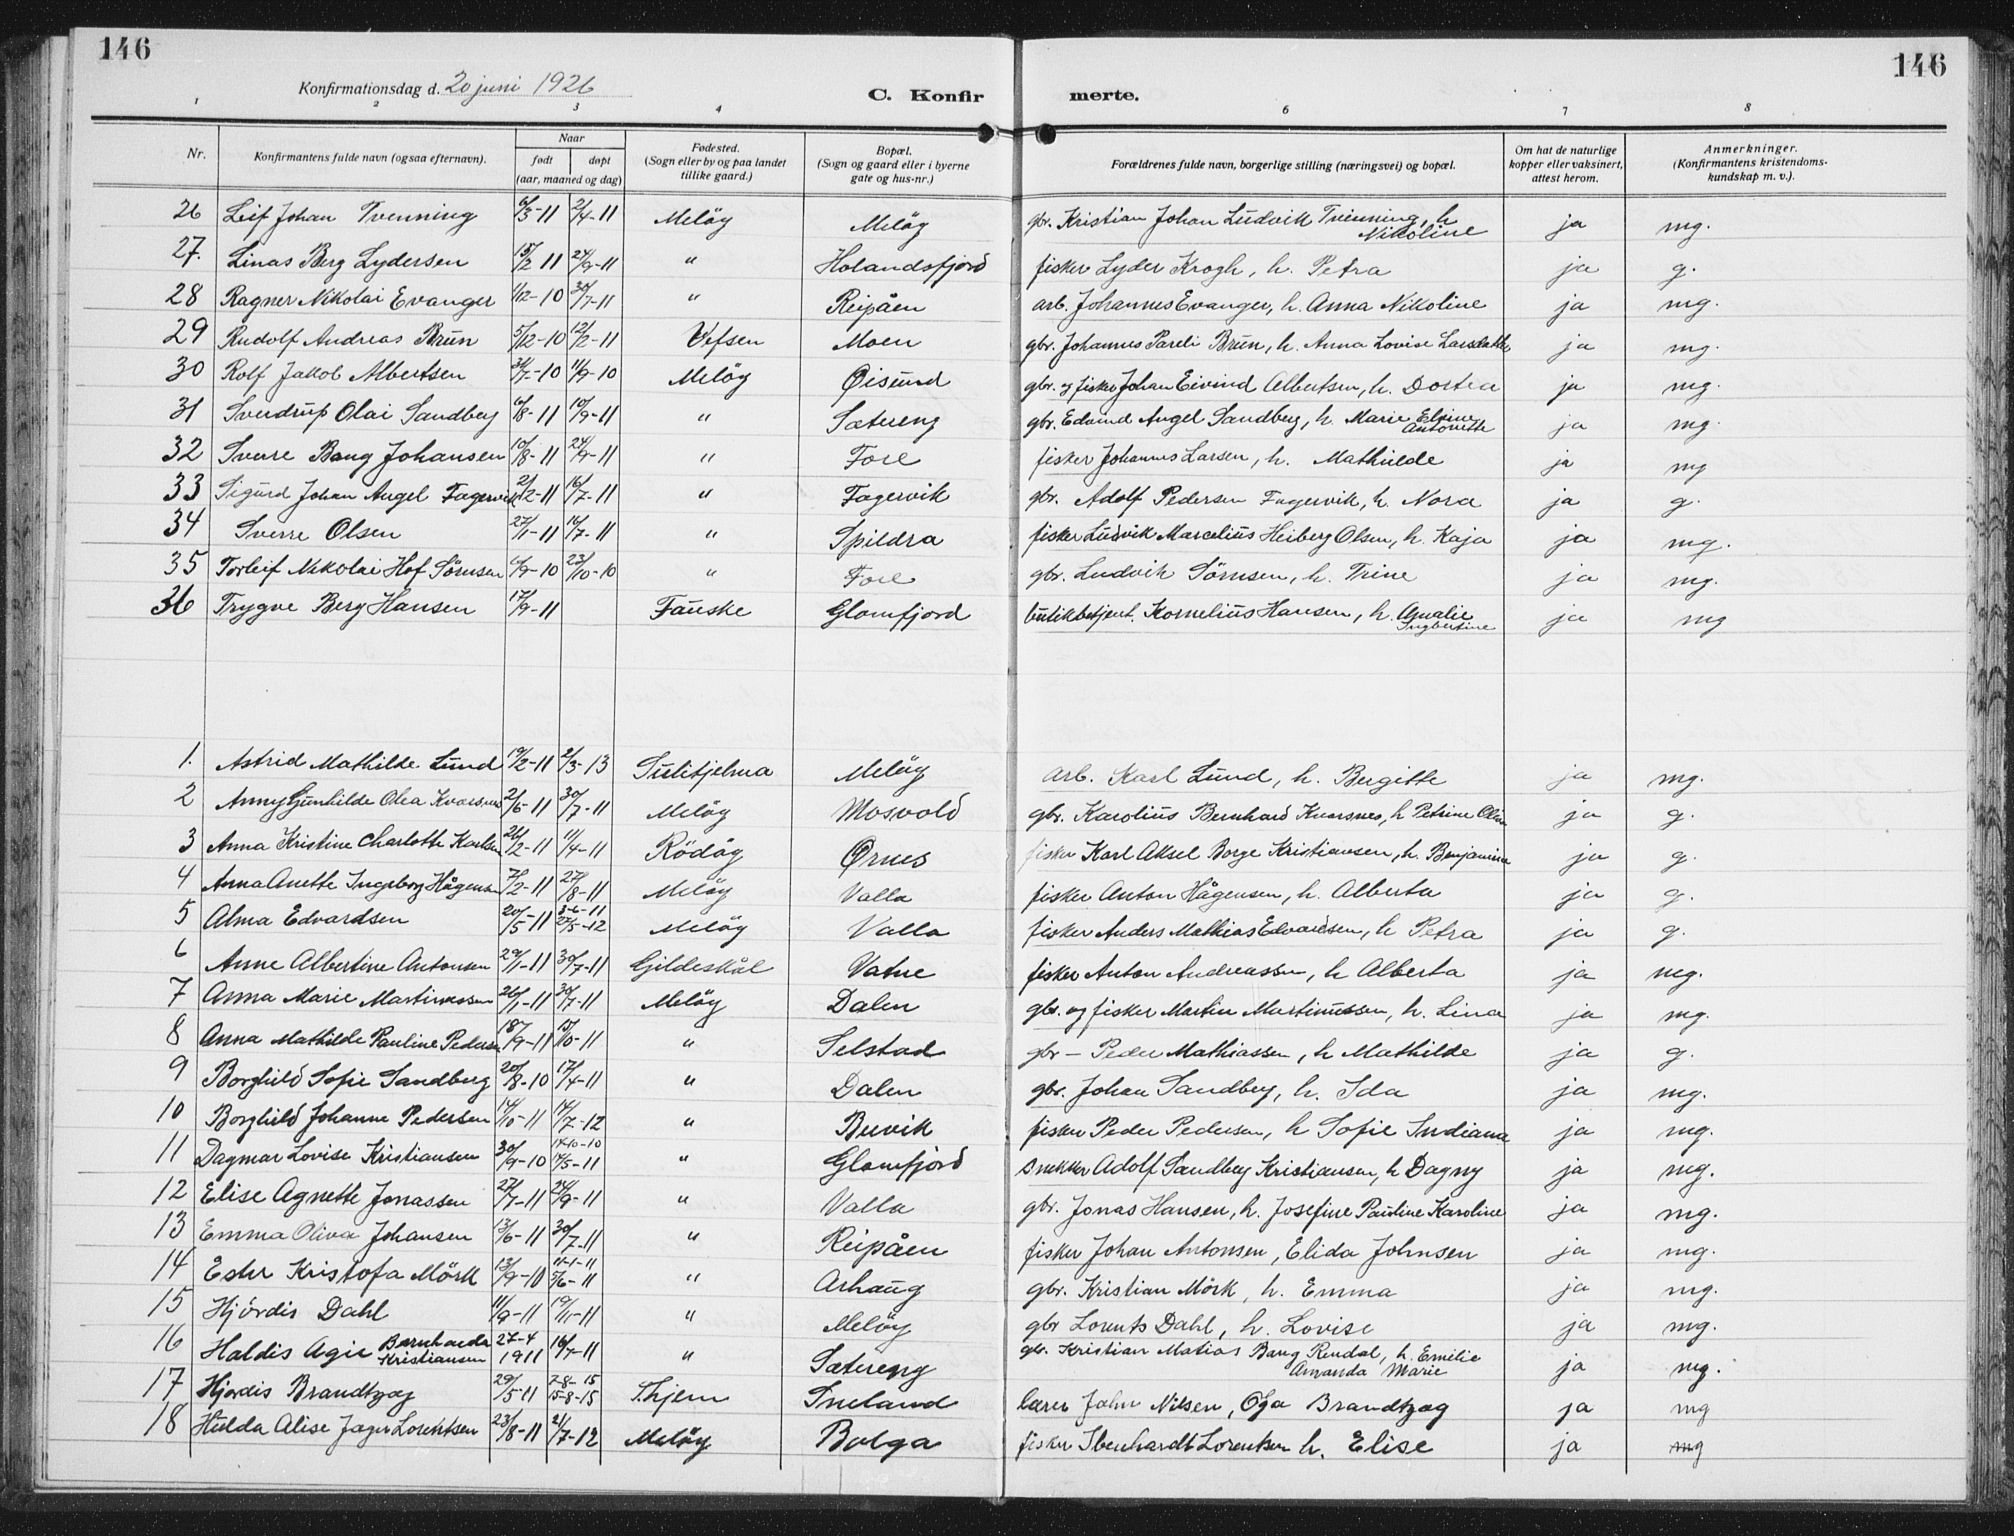 146
146
Konfirmationsdag d. 20 juni 1926
C. Konfir merte.
1 2 3 4 6 7 8
Nr.
Konfirmantens fulde navn (ogsaa efternavn).
Naar
født døpt
(aar, maaned og dag)
Fødested.
(Sogn eller by og paa landet
tillike gaard.)
Bopæl.
(Sogn og gaard eller i byerne
gate og hus-nr.)
Forældrenes fulde navn, borgerlige stilling (næringsvei) og bopæl.
Om hat de naturlige
kopper eller vaksinert,
attest herom.
Anmerkninger.
(Konfirmantens kristendoms-
kundskap m. v.).
26 Leif Johan Tvenning 6/3-11 2/4-11 Meløy Meløy gbr. Kristian Johan Ludvik Tvenning, h. Nikoline ja mg.
27. Linas Berg Lydersen 15/2 11 24/9-11 " Holandsfjord fisker Lyder Krogh, h. Petra ja g.
28 Ragner Nikolai Evanger 1/12-10 30/7-11 " Reipåen arb. Johannes Evanger, h. Anna Nikoline ja mg.
29 Rudolf Andreas Brun 5/12-10 12/2-11 Vefsen Moen gbr. Johannes Pareli Brun, h. Anna Lovise ja mg.
30 Rolf Jakob Albertsen 31/7-10 11/9-10 Meløy Øisund gbr. og fisker Johan Eivind Albertsen, h. Dortea ja mg.
31 Sverdrup Olai Sandberg 6/8-11 10/9-11 " Sætereng gbr. Edvind Angel Sandberg, h. Marie Elvine Antonette ja mg.
32 Sverre Bang Johansen 10/8-11 24/9-11 " Fore fisker Johannes Larsen, h. Mathilde ja mg
33 Sigurd Johan Angel Fagervik 21/2-11 16/7-11 " Fagervik gbr. Adolf Pedersen Fagervik, h. Nora ja g.
34 Sverre Olsen 27/1-11 16/7-11 " Spildra fisker Ludvik Marcelius Heiberg Olsen, h. Kaja ja mg.
35 Torleif Nikolai Hof Sørnsen 6/9-10 23/10-10 " Fore gbr. Ludvik Sørnsen, h. Trine ja mg.
36 Trygve Berg Hansen 17/9-11 Fauske Glomfjord butikbetjent. Kornelius Hansen, h. Amalie Ingbertine ja mg
1. Astrid Mathilde Lund 19/2-11 2/3-13 Sulitjelma Meløy arb. Karl Lund, h. Bergitte ja mg.
2 Anny Gunhilde Olea Kvarsnes 2/6-11 30/7-11 Meløy Mosvold gbr. Karolius Bernhard Kvarsnes, h Petrine ja g.
3 Anna Kristine Charlotte Karlsen 26/2-11 11/4-11 Rödöy Ørnes fisker Karl Aksel Borge Kristiansen, h. Benjamine ja g.
4 Anna Anette Ingeborg Hågensen 7/2-11 27/8-11 Meløy Valla fisker Anton Hågensen, h. Alberta ja g.
5 Alma Edvardsen 20/5-11 3-6-11 27/5-12 Meløy Valla fisker Anders Mathias Edvardsen, h Petra ja g.
6 Anne Albertine Antonsen 29/1-11 30/7-11 Gildeskål Vatne fisker Anton Andreassen, h Alberta ja mg.
7 Anna Marie Martinussen 26/1-11 30/7-11 Meløy Dalen gbr. og fisker Martin Martinussen, h. Lina ja mg.
8 Anna Mathilde Pauline Pedersen 18/9-11 15/10-11 " Selstad gbr - Peder Mathiassen, h Mathilde ja g.
9 Borghild Sofie Sandberg 20/8-10 17/4-11 " Dalen gbr. Johan Sandberg, h. Ida ja mg.
10 Borghild Johanne Pedersen 14/10-11 14/7-12 " Buvik fisker Peder Pedersen, h Sofie Indiana ja mg.
11 Dagmar Lovise Kristiansen 30/9-10 14-10-10 17/5-11 " Glomfjord snekker Adolf Sandberg Kristiansen, h Dagny ja mg.
12 Elise Agnette Jonassen 27/7-11 24/9-11 " Valla gbr. Jonas Hansen, h. Josefine Pauline Karoline ja mg.
13 Emma Oliva Johansen 13/6-11 30/7-11 " Reipåen fisker Johan Antonsen, Elida Johnsen ja mg.
14 Ester Kristofa Mörk 13/9-10 11-1-11 5/6-11 " Arhaug gbr. Kristian Mörk, h. Emma ja mg.
15 Hjördis Dahl 11/9-11 19/11-11 " Meløy gbr Lorents Dahl, h. Lovise ja mg.
16 Haldis Agie Bernharda Kristiansen 27-4 1911 16/7-11 " Sætereng gbr. Kristian Matias Bang Rendal, h. Emilie Amanda Marie ja mg.
17 Hjördis Brandtzæg 29/5-11 7-8-15 15-8-15 Skjern Sneland lærer John Nilsen, Olga Brandtzæg ja mg
18 Hulda Alise Jager Lorentsen 23/8-11 21/7-12 Meløy Bolga fisker Ibenhardt Lorentsen h. Elise ja mg